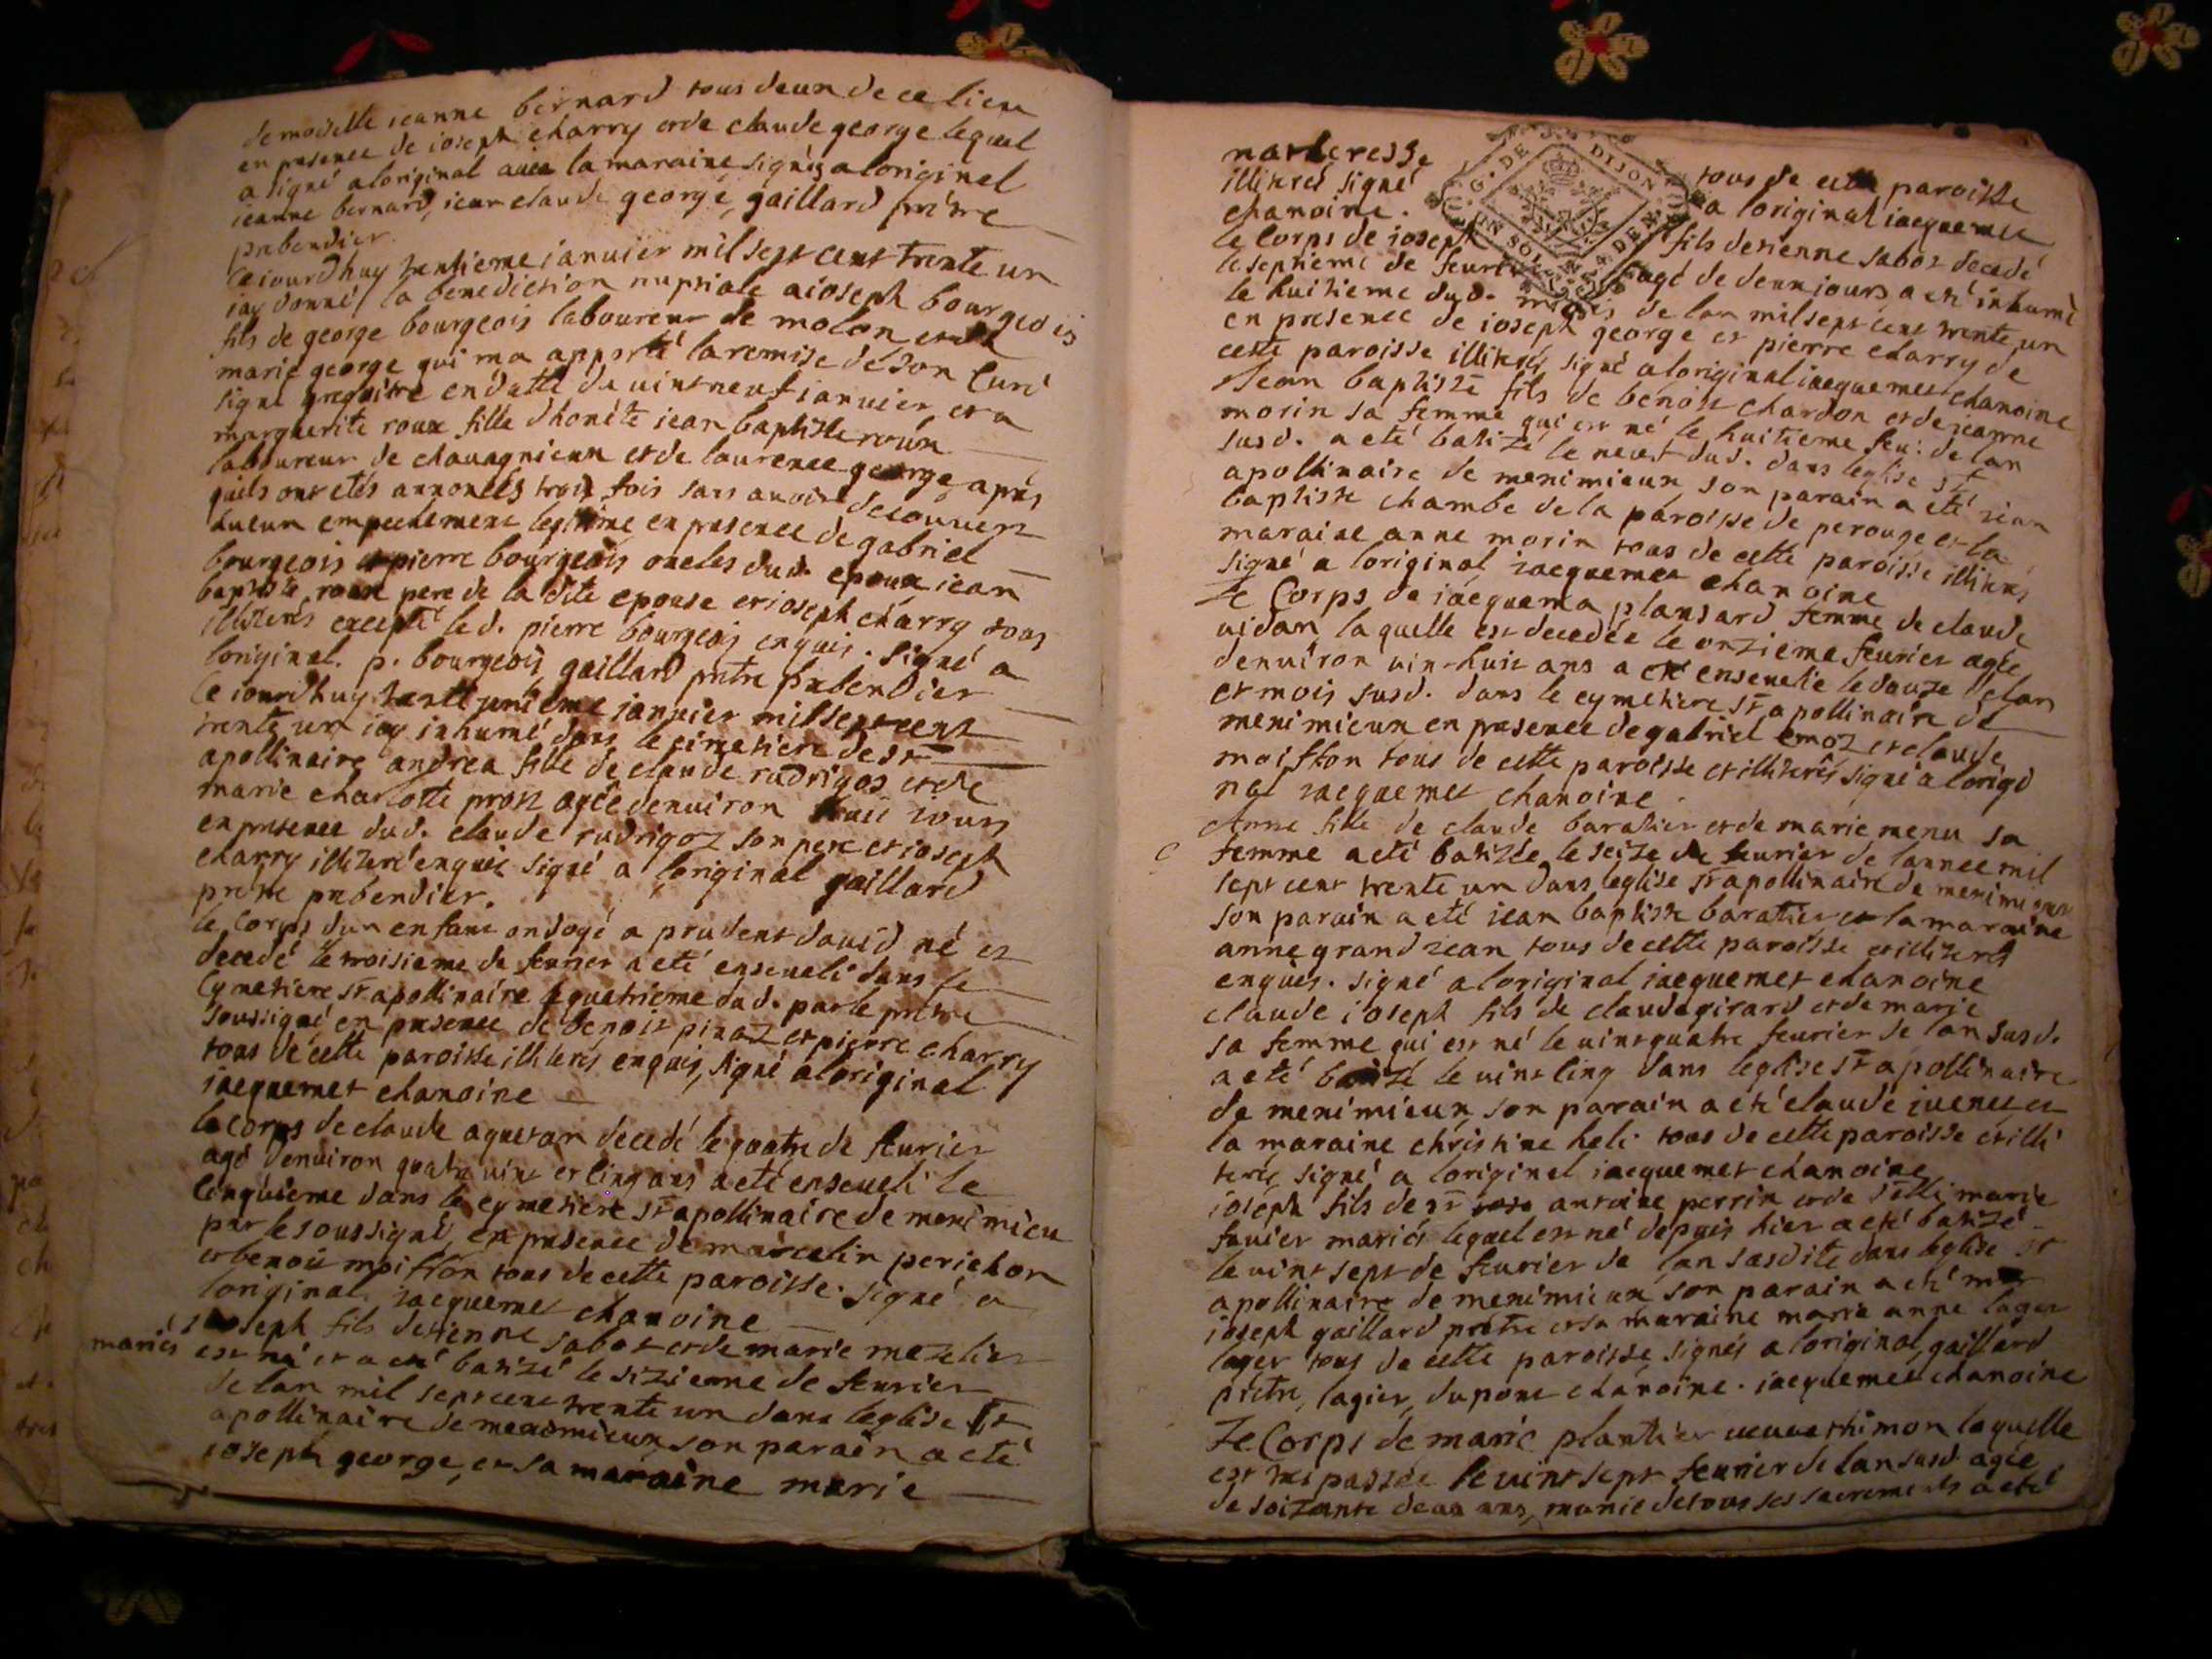 demoiselle ieanne bernard tous deux de ce lieu
en presence de ioseph charry et de claude george lequel
a signé a loriginal avec la maraine signés a loriginel
ieanne bernard, iean claude george, gaillard prêtre
prebendier.
Ce iourdhuy trentieme ianvier mil sept cent trente un
iay donné la benediction nuptiale a ioseph bourgeois
fils de george bourgeois laboureur de molon et de
marie george qui ma apporté la remise de son Curé
signé gregoire en datte du vint neuf ianvier et a
marguerite roux fille dhonête iean baptiste roux
laboureur de chavagnieux et de laurence george apres
quils ont etés annoncés trois fois sans avoir decouvert
aucun empechement legitime en presence de gabriel
bourgeois et pierre bourgeois oncles dud. epoux iean
baptiste roux pere de la dite epouse et ioseph charry tous
illiterés excepté led. pierre bourgeois enquis. signé a
loriginal. p. bourgeois, gaillard prêtre prebendier
Ce iourdhuy trente unieme ianvier mil sept cent
trente un iay inhumé dans le cimetiere de st
apollinaire andrea fille de claude rudrigoz et de
marie charlotte prost agée denviron huit iours
en presence dud. claude rudrigoz son pere et ioseph
charry illiteré enquis signé a loriginal gaillard
prêtre prebendier.
le Corps dun enfant ondoyé a prudent david né et
decedé le troisieme de fevrier a eté enseveli dans le
Cymetiere st apollinaire le quatrieme dud. par le prêtre
soussigné en presence de benoit pinaz et pierre charry
tous de cette paroisse illiterés enquis, signé a loriginal
iacquemet chanoine
le corps de claude aquetan decedé le quatre de fevrier
agé denviron quatre vint et cinq ans a eté enseveli le
cinquieme dans le cymetiere st apollinaire de meximieu
par le soussigné, en presence de marcelin perichon
et benoit moiffon tous de cette paroisse. signé a
loriginal iacquemet chanoine
ioseph fils detienne sabot et de marie mezelier
mariés est né et a eté batizé le sizieme de fevrier
de lan mil sept cent trente un dans leglise st
apollinaire de meximieux son parain a eté
ioseph george, et sa maraine marie
tous de cette paroisse
illiterés signé a loriginal iacquemet
chanoine.
le Corps de ioseph fils detienne sabot decedé
le septieme de fevrier agé de deux iours a eté inhumé
le huitieme dud. mois de lan mil sept cent trente un
en presence de ioseph george et pierre charry de
cette paroisse illiterés signé a loriginal iacquemet chanoine
Jean baptiste fils de benoit chardon et de ieanne
morin sa femme qui est né le huitieme fev: de lan
susd. a eté batizé le neuf dud. dans leglise st
apollinaire de meximieux son parain a eté iean
baptiste chambe de la paroisse de perouge et la
maraine anne morin tous de cette paroisse illiterés
signé a loriginal iacquemet chanoine
Le Corps de iacquema plansard femme de claude
vidan laquelle est decedée le onzieme fevrier agée
denviron vin-huit ans a eté ensevelie le douze de lan
et mois susd. dans le cymetiere st apollinaire de
meximieux en presence de gabriel emoz et claude
moiffon tous de cette paroisse et illiterés signé a lorigi
nal iacquemet chanoine
Anne fille de claude baratier et de marie menu sa
femme a eté batizée le seize de fevrier de lannee mil
sept cent trente un dans leglise st apollinaire de meximieux
son parain a eté iean baptiste baratier et la maraine
anne grand iean tous de cette paroisse et illiterés
enquis. signé a loriginal iacquemet chanoine
claude ioseph fils de claude girard et de marie
sa femme qui est né le vint quatre fevrier de lan susd.
a eté batizé le vint cinq dans leglise st apollinaire
de meximieux son parain a eté claude iuenet et
la maraine christine heli tous de cette paroisse et illi
terés signé a loriginel iacquemet chanoine
ioseph fils de sr antoine perrin et de delle marie
favier mariés lequel est né depuis hier a eté batizé
le vint sept de fevrier de lan susdite dans leglise st
apollinaire de meximieux son parain a eté
ioseph gaillard prêtre et sa maraine marie anne lager
lager tous de cette paroisse signés a loriginal, gaillard
prêtre, lagier, dupont chanoine. iacquemet chanoine
Le Corps de marie plantier veuve thimon laquelle
est trepassée le vint sept fevrier de lan susd. agée
de soizante deux ans, munie de tous ses sacrements a eté
G. DE DIJON